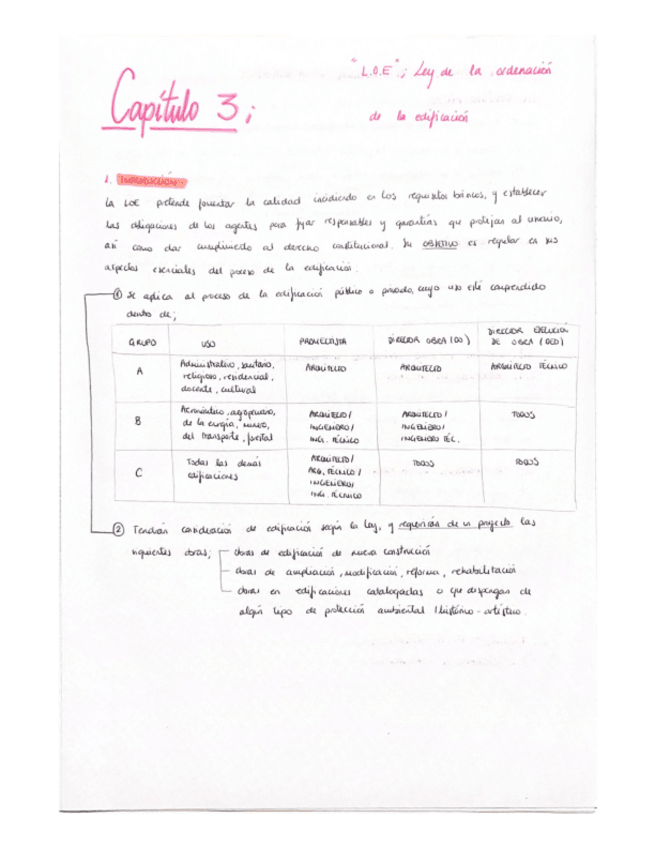 "L.O.E"; Ley de la ordenación
Capítulo 3;
de la edificación
1. INTRODUCCIÓN.
La LOE pretende fomentar la calidad incidiendo en los requisitos básicos, y establecer
las obligaciones de los agentes para fijar responsables y garantías que protejan al usuario,
así como dar cumplimiento al derecho constitucional. Su OBJETIVO es regular en sus
aspectos esenciales del proceso de la edificación.
① Se aplica al proceso de la edificación público o privado, cuyo uso esté comprendido
dentro de;
GRUPO USO PROYECTISTA DIRECTOR OBRA (DO) DIRECTOR EJECUCIÓN
DE OBRA (DEO)
A Administrativo, sanitario, ARQUITECTO ARQUITECTO ARQUITECTO TÉCNICO
religioso, residencial,
docente, cultural
B Aeronáutico, agropecuario, ARQUITECTO/ ARQUITECTO/ TODOS
de la energía, minero, INGENIERO/ INGENIERO/
del transporte, forestal INGE. TÉCNICO INGENIERO TÉC.
C Todas las demás ARQUITECTO/ TODOS TODOS
edificaciones ARQ. TÉCNICO/
INGENIERO/
ING. TÉCNICO
② Tendrán consideración de edificación según la ley, y requerirán de un proyecto las
siguientes obras; obras de edificación de nueva construcción
obras de ampliación, modificación, reforma, rehabilitación
obras en edificaciones catalogadas o que dispongan de
algún tipo de protección ambiental / histórico-artístico.